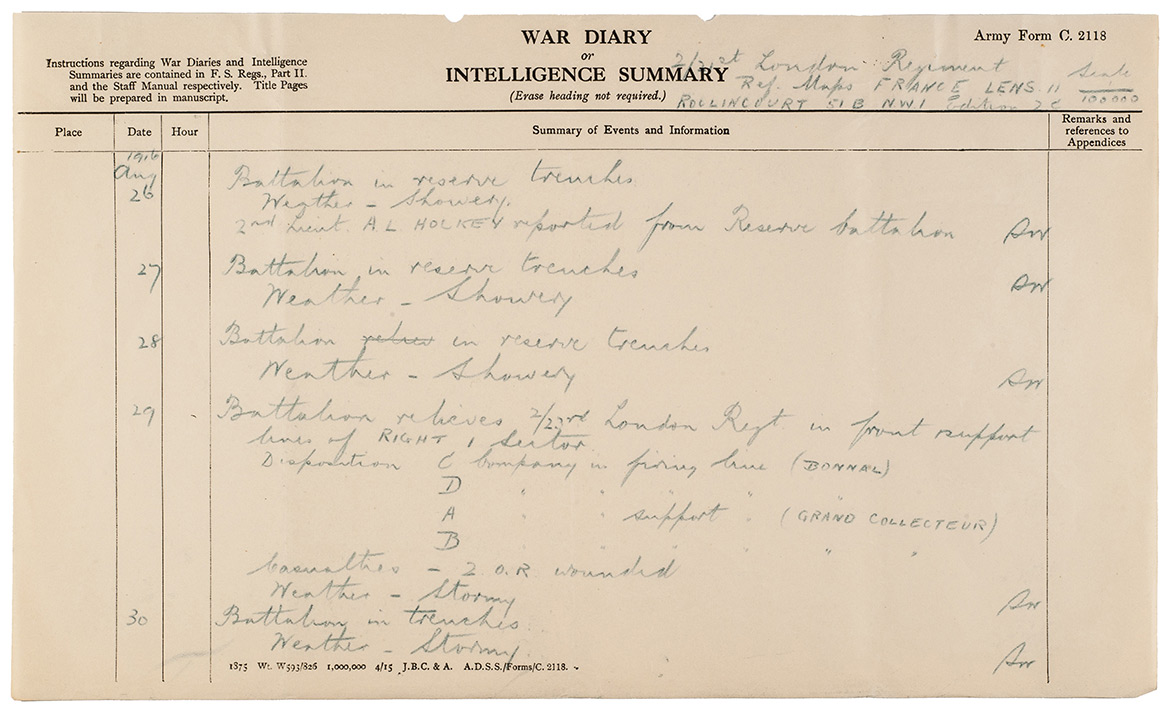 WAR DIARY
or
INTELLIGENCE SUMMARY
(Erase heading not required.)
Army Form C. 2118
Instructions regarding War Diaries and Intelligence
Summaries are contained in F. S. Regs., Part II.
and the Staff Manual respectively. Title Pages
will be prepared in manuscript.
2/21st London Regiment
Ref. Maps FRANCE LENS. 11 Scale 1/100000
ROCLINCOURT 51B NW1 Edition
Place Date Hour Summary of Events and Information Remarks and references to Appendices
1916
Aug
26 Battalion in reserve trenches
Weather - Showery.
2nd Lieut. A L HOCKEY reported from Reserve battalion
27 Battalion in reserve trenches
Weather - Showery
28 Battalion in reserve trenches
Weather - Showery
29 Battalion relieves 2/23rd London Regt in front & support
lines of RIGHT 1 Sector
Disposition C Company in firing line (BONNAL)
D " " " "
A " " support " (GRAND COLLECTEUR)
B " " " " " "
Casualties - 2 O.R. wounded
Weather - Stormy
30 Battalion in trenches
Weather - Stormy.
1875 Wt. W593/826 1,000,000 4/15 J.B.C. & A. A.D.S.S./Forms/C. 2118.